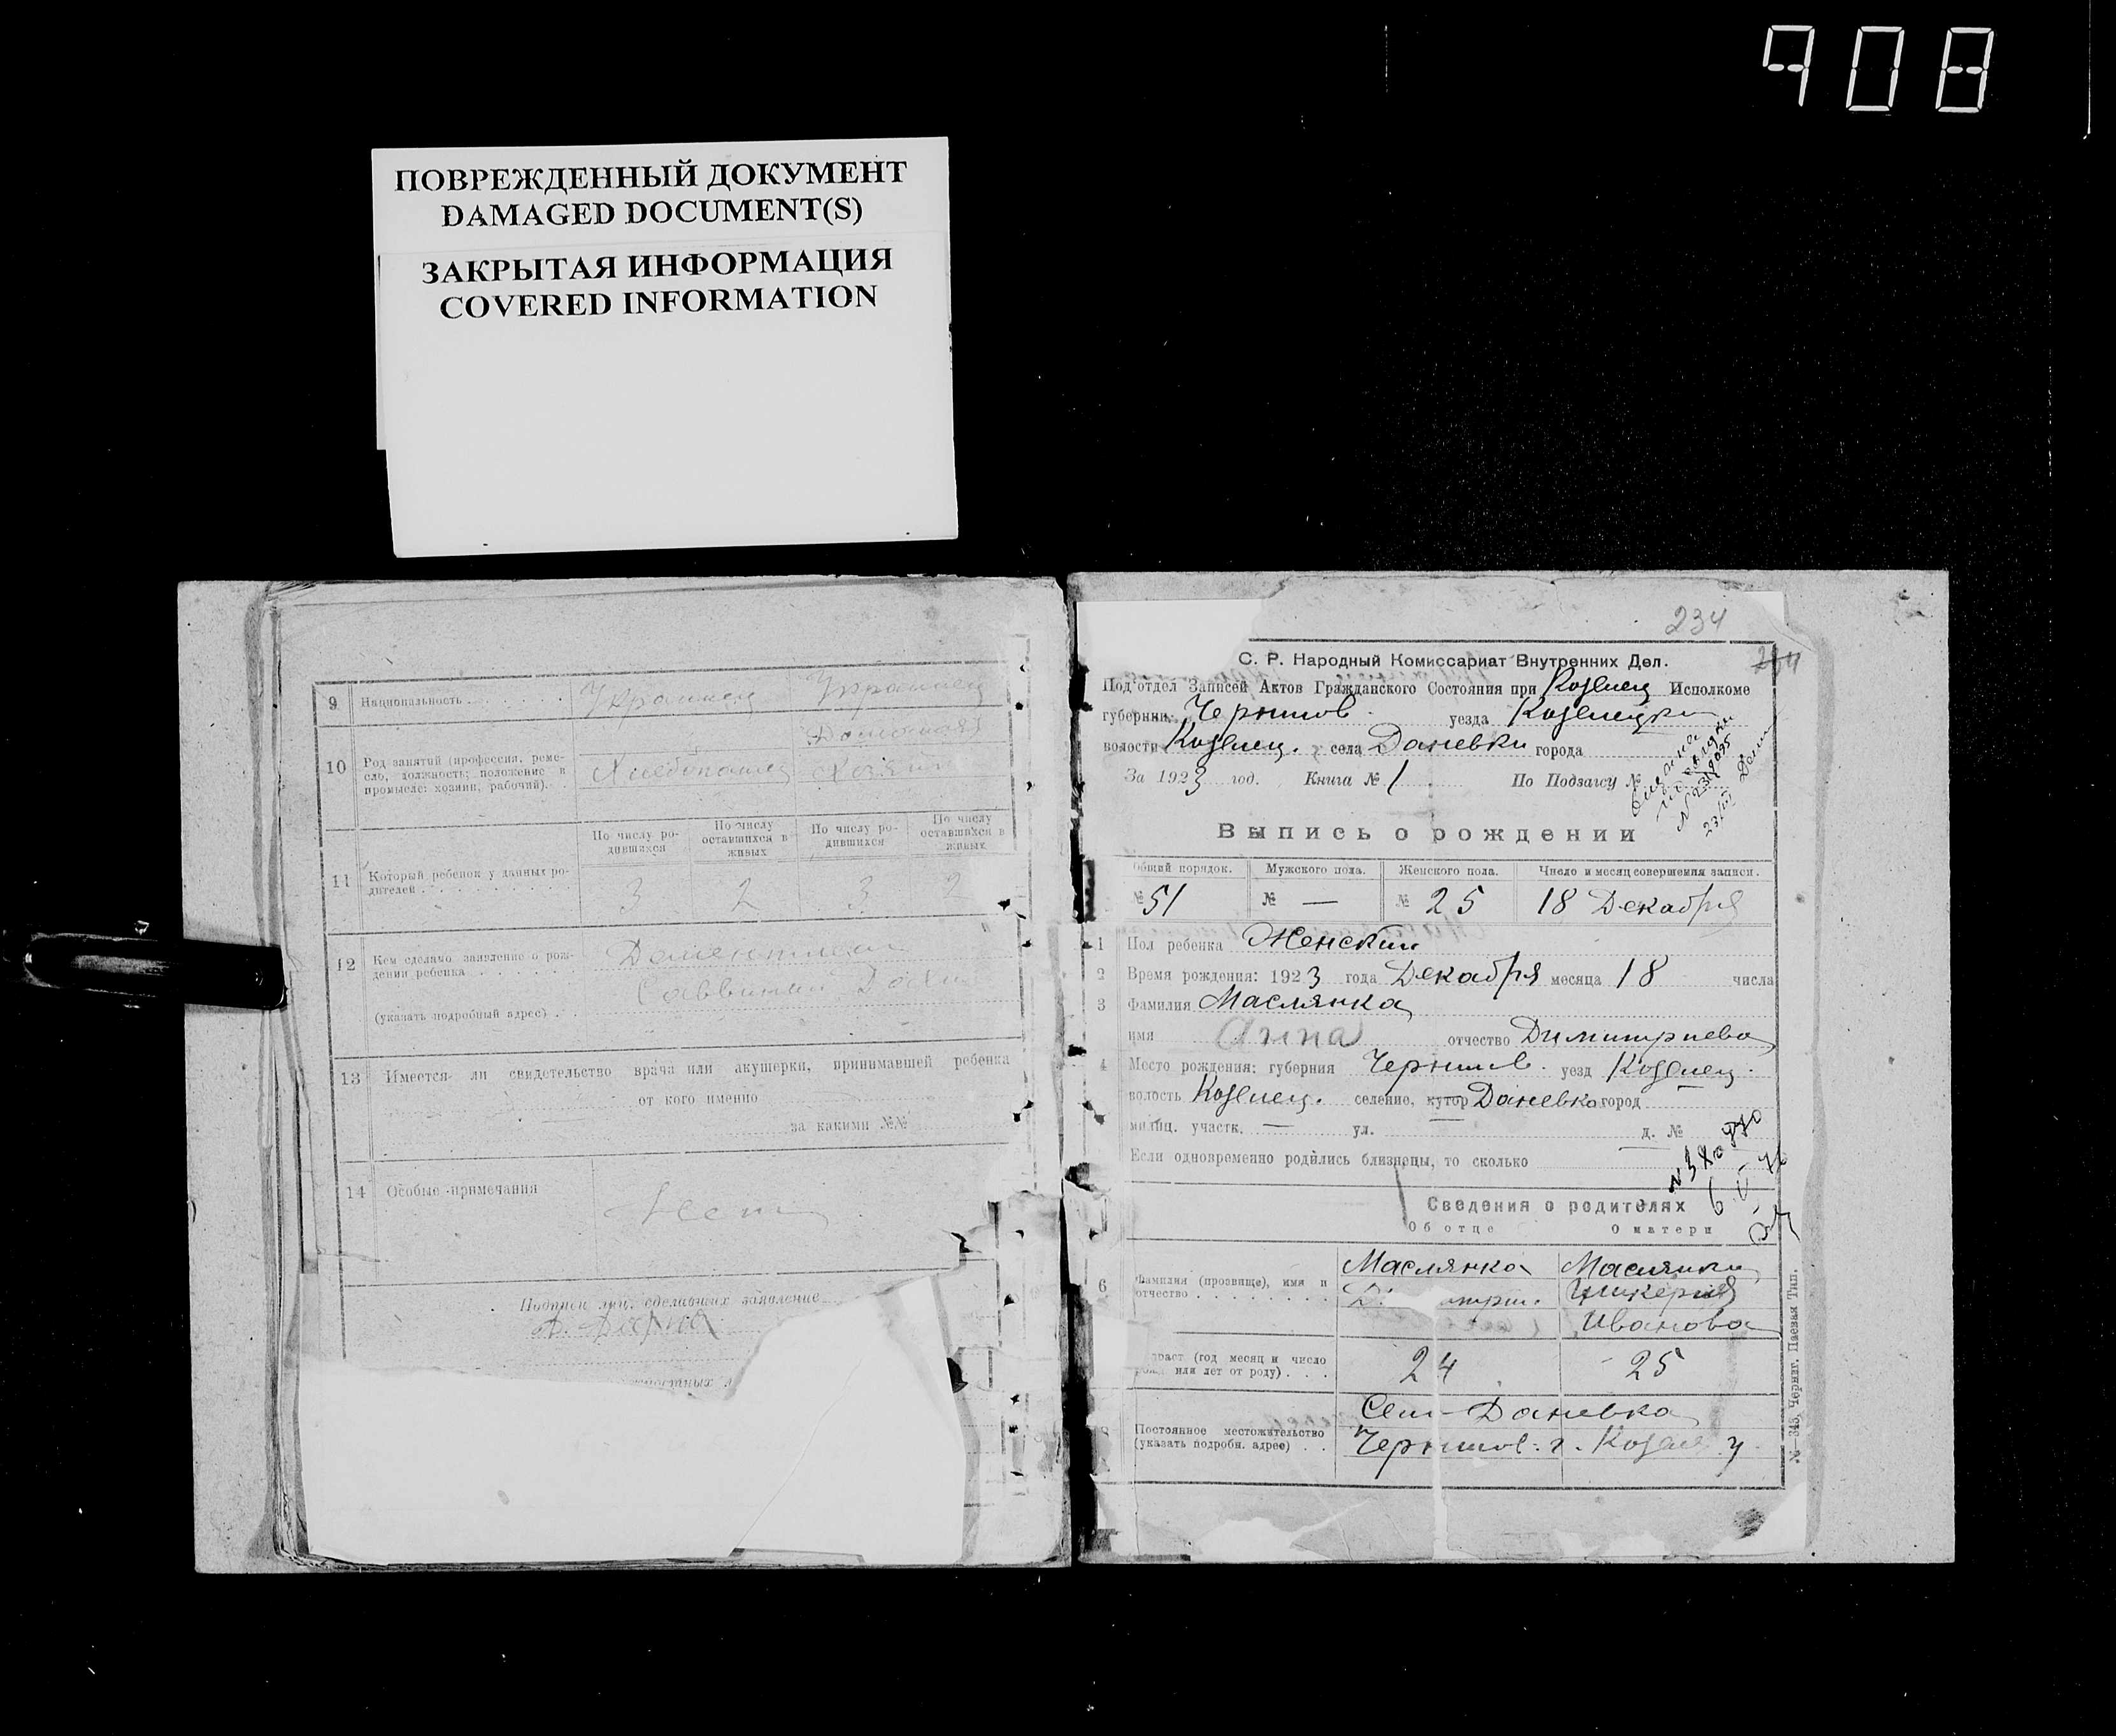 908
ПОВРЕЖДЕННЫЙ ДОКУМЕНТ
DAMAGED DOCUMENT(S)
ЗАКРЫТАЯ ИНФОРМАЦИЯ
COVERED INFORMATION
9 Национальность Украинец Украинец
10 Род занятий (профессия, реме-
сло, должность; положение в
промысле: хозяин, рабочий).
Хлебопашец
По числу ро-
дившихся
По числу
оставшихся в
живых
По числу ро-
дившихся
По числу
оставшихся в
живых
11 Который ребенок у данных ро-
дителей
3 2 3 2
12 Кем сделано заявление о рож-
дении ребенка
(указать подробный адрес)
13 Имеется ли свидетельство врача или акушерки, принимавшей ребенка
от кого именно
за какими №№
14 Особые примечания
Нет
Подписи лиц, сделавших заявление
234
С. Р. Народный Комиссариат Внутренних Дел.
Под'отдел Записей Актов Гражданского Состояния при Козелец Исполкоме
губернии Чернигов. уезда
волости Козелец. села Даневки города
За 1923 год. Книга № 1 По Подзагсу №
Выпись о рождении
Общий порядок. Мужского пола. Женского пола. Число и месяц совершения записи.
№ 51 № — № 25 18 Декабря
1 Пол ребенка Женский
2 Время рождения: 1923 года Декабря месяца 18 числа
3 Фамилия Маслянка
имя Анна отчество Димитриева
4 Место рождения: губерния Чернигов. уезд Козелец.
волость Козелец. селение, хутор Даневка город
милиц. участк. — ул. д. №
Если одновременно родились близнецы, то сколько
Сведения о родителях
Об отце О матери
6 Фамилия (прозвище), имя и
отчество
Маслянка Маслянка
Иванова
(год месяц и число
или лет от роду)
24 25
Постоянное местожительство
(указать подробн. адрес)
Село Даневка
Чернигов. г. Козелец у.
№—343, Черниг. Паевая Тип.